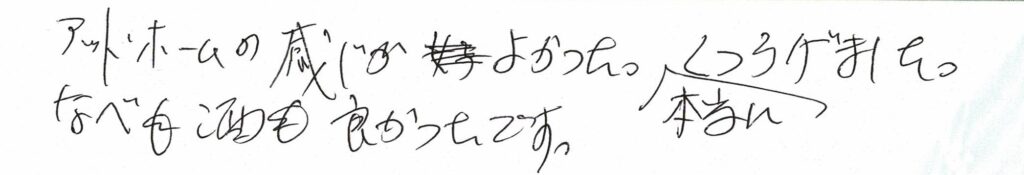 アットホームの感じがよかった。本当にくつろげました。
なべも酒も良かったです。